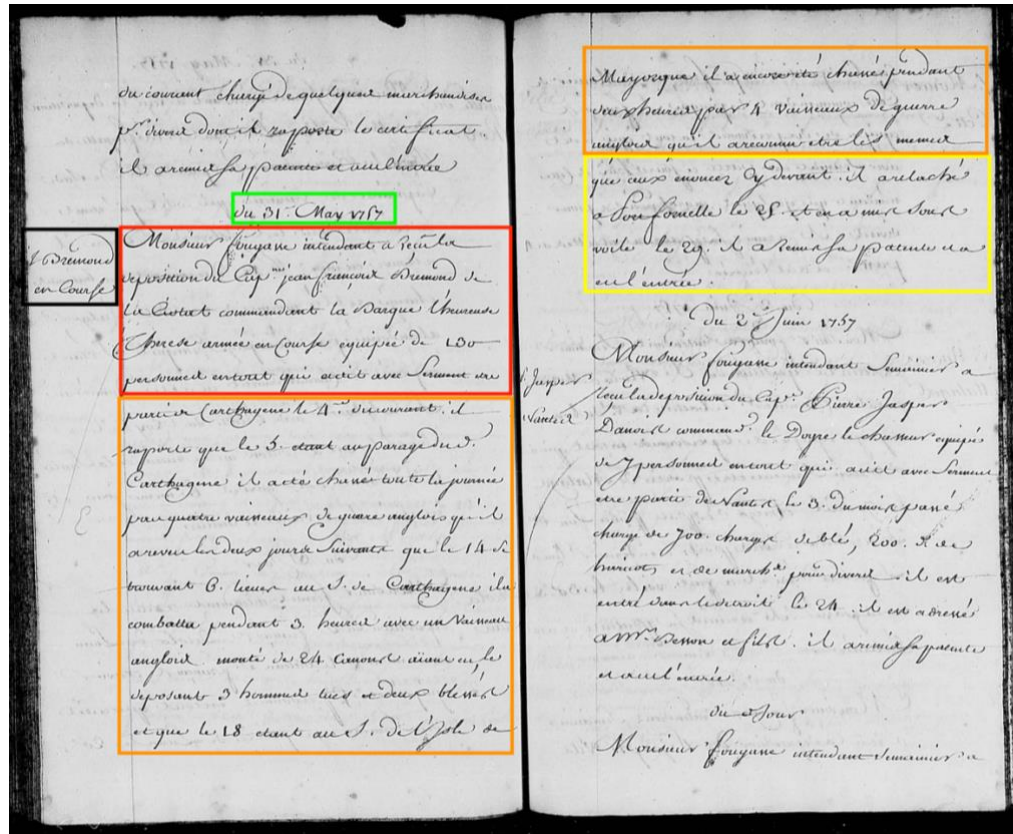 du courant chargé de quelques marchandises
pr. divers dont il raporte le certificat
il a remis sa patente et a eu l'entrée
du 31. May 1757
Monsieur fougasse intendant a recu la
C Bremond
en Course
deposition du Cap.ne jean françois Bremond de
la Ciotat commandant la Barque l'heureuse
Therese armée en Course equipée de 130
personnes en tout qui a dit avec Serment etre
parti de Carthagene le 4.e du courant. il
raporte que le 5. etant au parage du d.
Carthagene il a eté chassé toute la journée
par quatre vaisseaux de guere anglois qu'il
a reveu les deux jours Suivants que le 14 se
trouvant 6. lieues au S. de Carthagene il a
combattu pendant 3. heures avec un Vaisseau
anglois monté de 24 Canons aiant eu le
deposant 3 hommes tués et deux blessés
et que le 18 etant au S. de l'Isle de
Mayorque il a encore eté chassé pendant
deux heures par 4 vaisseaux de guerre
anglois qu'il a reconnu etre les memes
que ceux enoncez cy devant. il a relaché
a Fornelle le 25. et en a mis Sous
voile le 29. il a remis sa patente et a
eu l'entrée
Du 2.e Juin 1757
Monsieur fougasse intendant Semainier a
Jasper
Nantes
recu la deposition du Cap.e Pierre Jasper
Danois command.t le Dogre le chasseur equipé
de 7 personnes en tout qui a dit avec Serment
etre partie de Nantes le 3. du mois passé
chargé de 700. charges de blé, 200. de
haricots et de march.es pour divers il est
entré dans le detroit le 24. il est adressé
a Mrs. et fils. il a remis sa patente
et a eu l'entrée.
du d. Jour
Monsieur fougasse intendant Semainier a